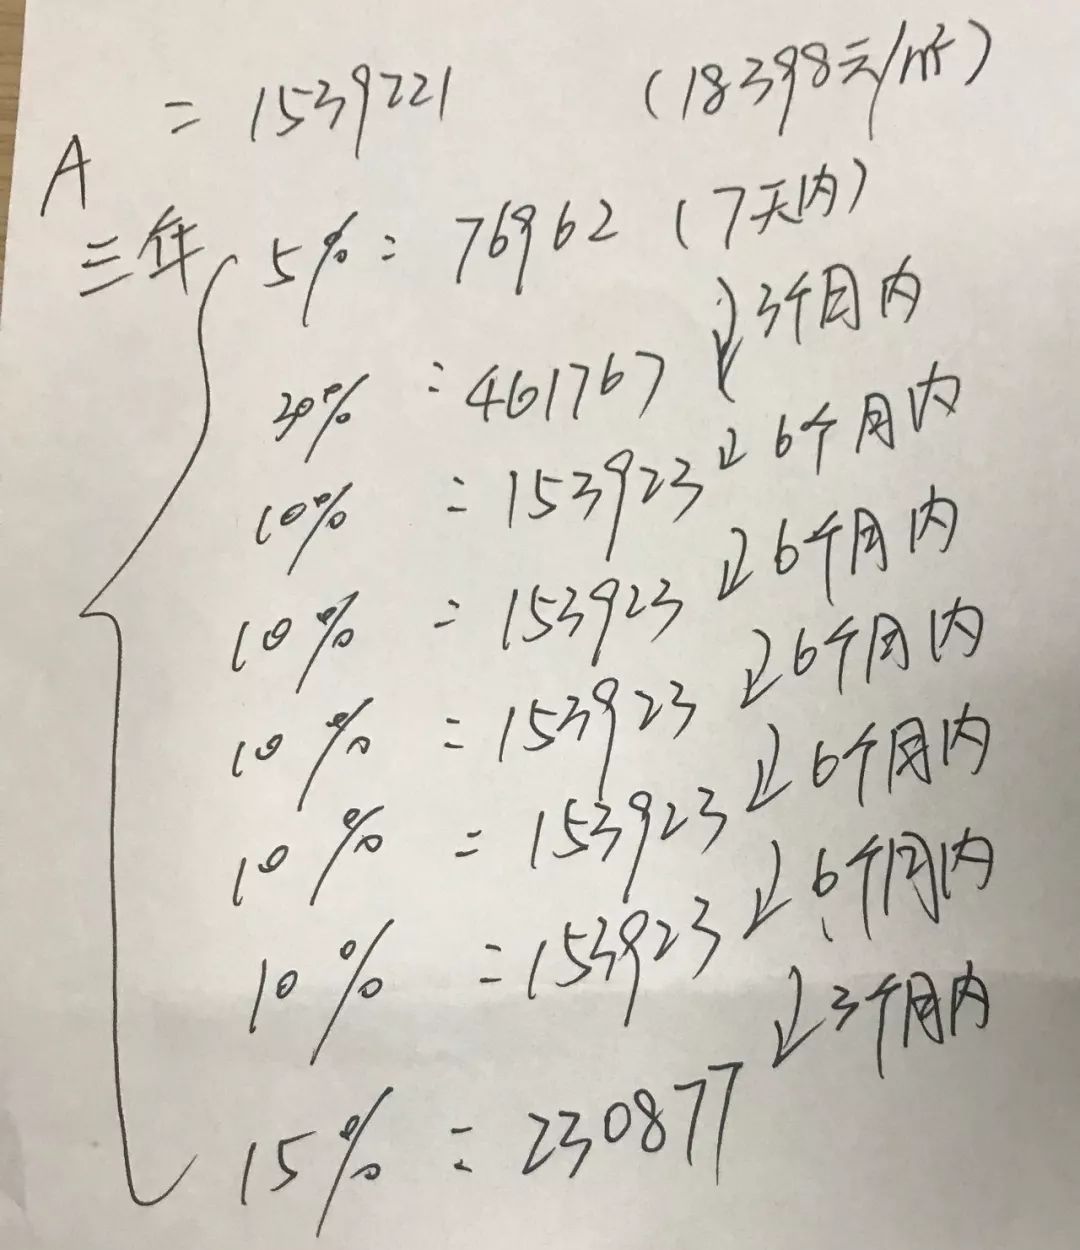 = 1539221 (18398元/㎡)
A
三年 5% = 76962 (7天内)
↓3个月内
30% = 461767
↓6个月内
10% = 153923
↓6个月内
10% = 153923
↓6个月内
10% = 153923
↓6个月内
10% = 153923
↓6个月内
10% = 153923
↓3个月内
15% = 230877